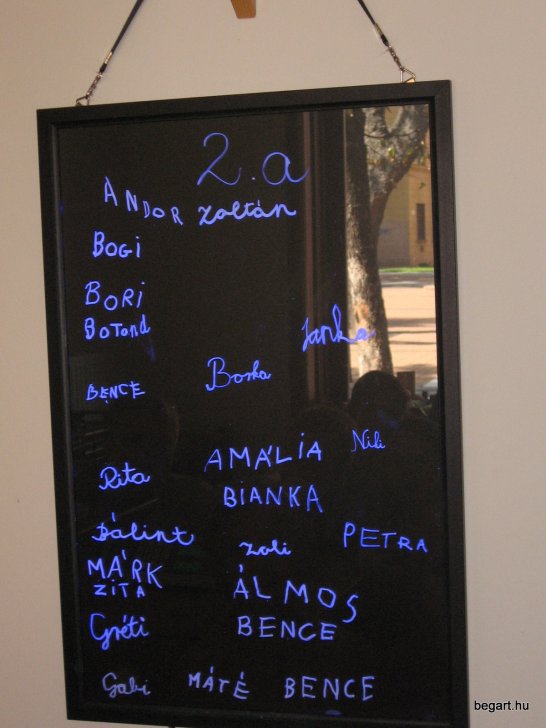 2.a
ANDOR Zoltán
BOGI
BORI
BOTOND
Janka
BENCE Boska
Nili
Rita AMÁLIA
BIANKA
Bálint Zoli PETRA
MÁRK
ZITA ÁLMOS
Gréti BENCE
Gabi MÁTÉ BENCE
begart.hu